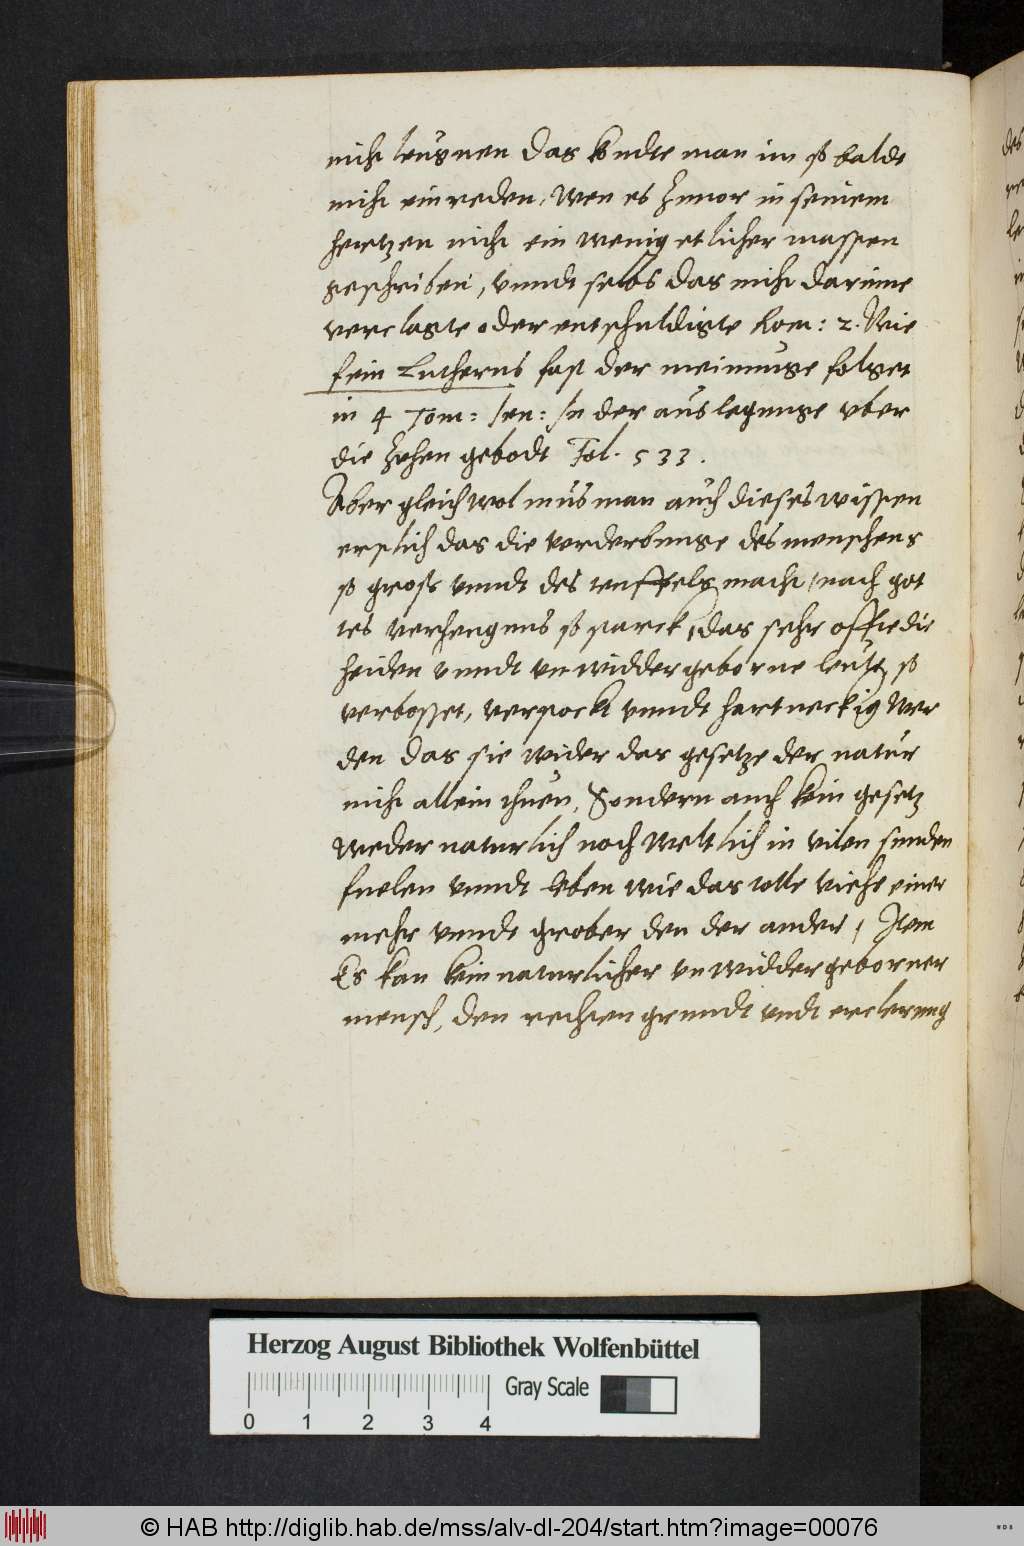 nicht leugnen das kondte man im so balde
nicht einreden, Wen es zuuor in seinem
hertzen nicht ein wenig etlicher massen
geschriben, vnndt selbs das nicht darinne
verclagte oder entschuldigte Rom: 2. Wie
fein Lutherus fast der meinunge folget
in 4 Tom: Jen: In der auslegunge vber
die Zehen gebodt Fol. 533.
Aber gleich wol mus man auch dieses wissen
erstlich das die vorderbunge des menschens
so gross vnndt des teuffels macht, nach got
tes verhengnus so starck, das sehr offte die
heiden vnndt vnwiddergeborne leutz so
verbosset, verstockt vnndt hartneckig Wer
den das sie wider das gesetze der natur
nicht allein thuen, Sondern auch kein gesetz
Weder naturlich noch Weltlich in vilen sunden
fuelen vnndt leben wie das tolle Viehe einer
mehr vnndt grober den der ander, Item
Es kan kein naturlicher vnwiddergeborner
mensch, den rechten grundt vndt erclerung
Herzog August Bibliothek Wolfenbüttel
Gray Scale
0 1 2 3 4
© HAB http://diglib.hab.de/mss/alv-dl-204/start.htm?image=00076